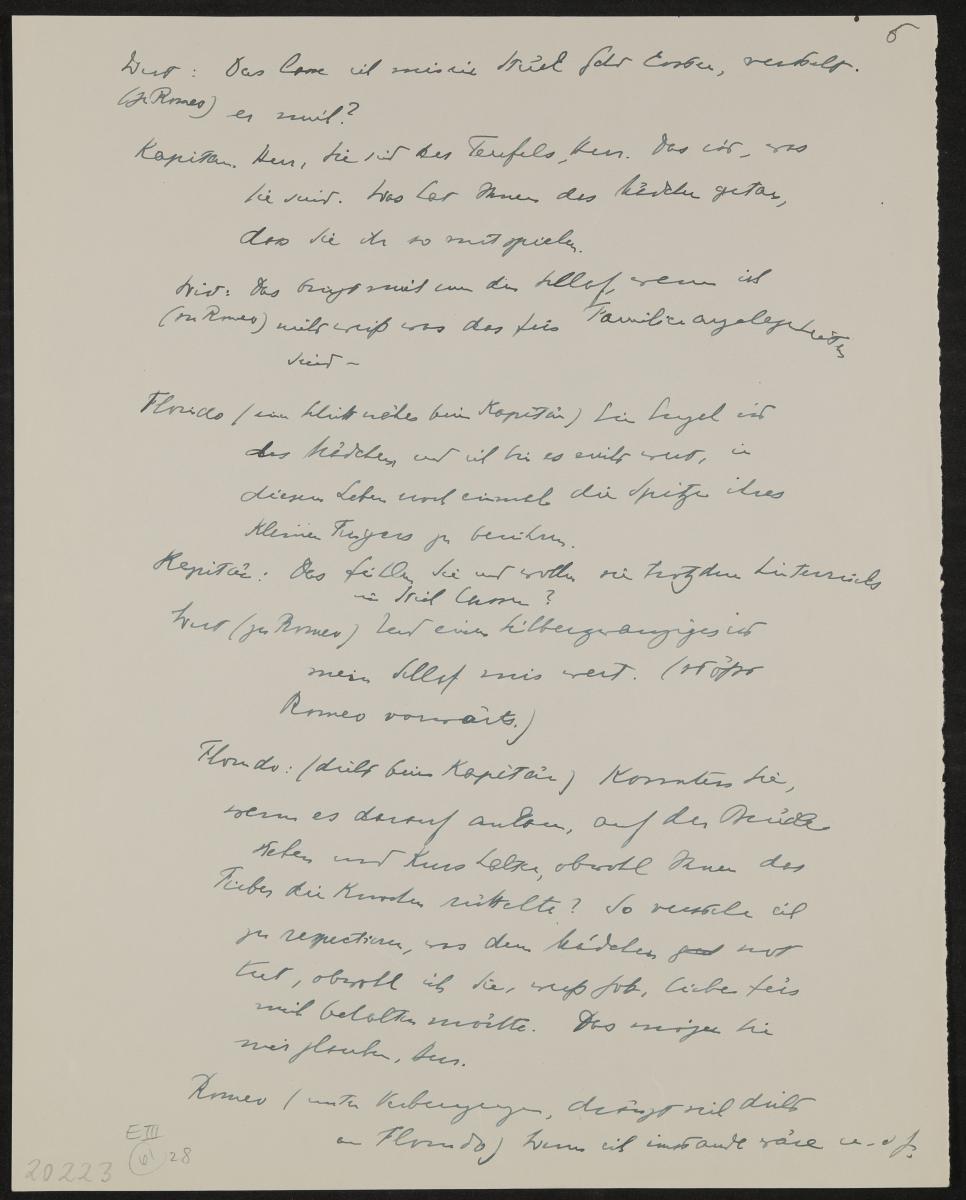 6
Wirt: Das lasse ich mir ein Stück Geld kosten, versteht
(zu Romeo) er mich?
Kapitän. Herr, Sie sind des Teufels, Herr. Das ist, was
Sie sind. Was hat Ihnen das Mädchen getan,
dass Sie ihr so mitspielen.
Wirt: Das bringt mich um den Schlaf, wenn ich
(zu Romeo) nicht weiß was das für Familienangelegenheiten
sind –
Florindo (einen Schritt näher beim Kapitän) Ein Engel ist
das Mädchen und ich bin es nicht wert, in
diesem Leben noch einmal die Spitze ihres
kleinen Fingers zu berühren.
Kapitän: Das fühlen Sie und wollen sie trotzdem hinterrücks
im Stich lassen?
Wirt (zu Romeo) Und einen Silberzwanziger ist
mein Schlaf mir wert. (stößt
Romeo vorwärts.)
Florindo: (dicht beim Kapitän) Konnten Sie,
wenn es darauf ankam, auf der Brücke
stehen und Kurs halten, obwohl Ihnen das
Fieber die Knochen rüttelte? So verstehe ich
zu respectieren, was dem Mädchen not
tut, obwohl ich sie, weiß Gott, lieber für
mich behalten möchte. Das mögen Sie
mir glauben, Herr.
Romeo (unter Verbeugungen, drängt sich dicht
an Florindo) Wenn ich imstande wäre u. s. f.
E III
6 28
20223